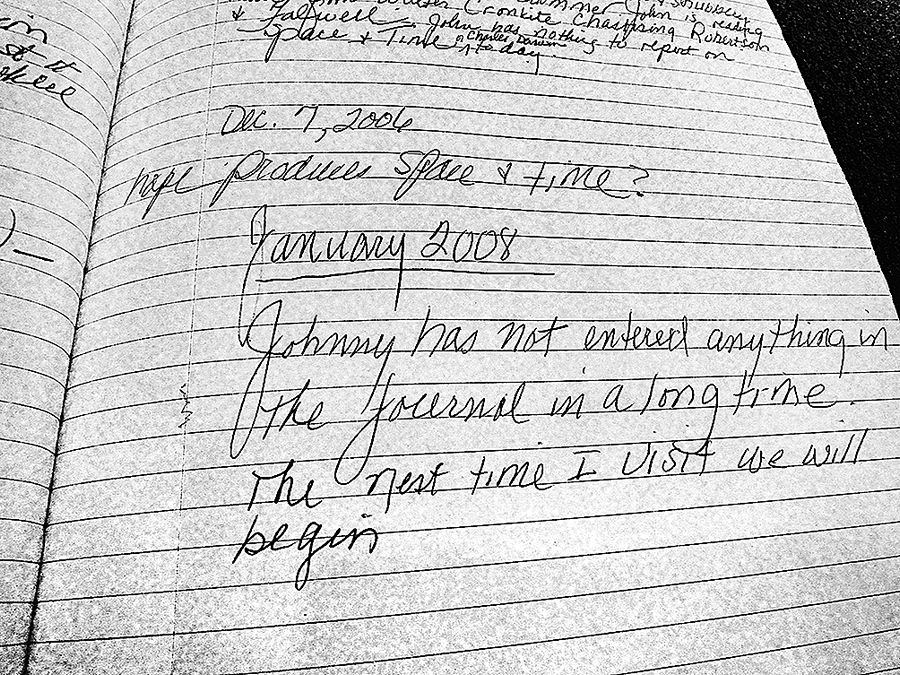 in
st it
John is reading
Cronkite Chastising Robertson
& Falwell. John has nothing to report on
Space & Time or Charles Darwin today.
Dec. 7, 2006
hope produces Space & time?
January 2008
Johnny has not entered anything in
the Journal in a long time.
The next time I visit we will
begin